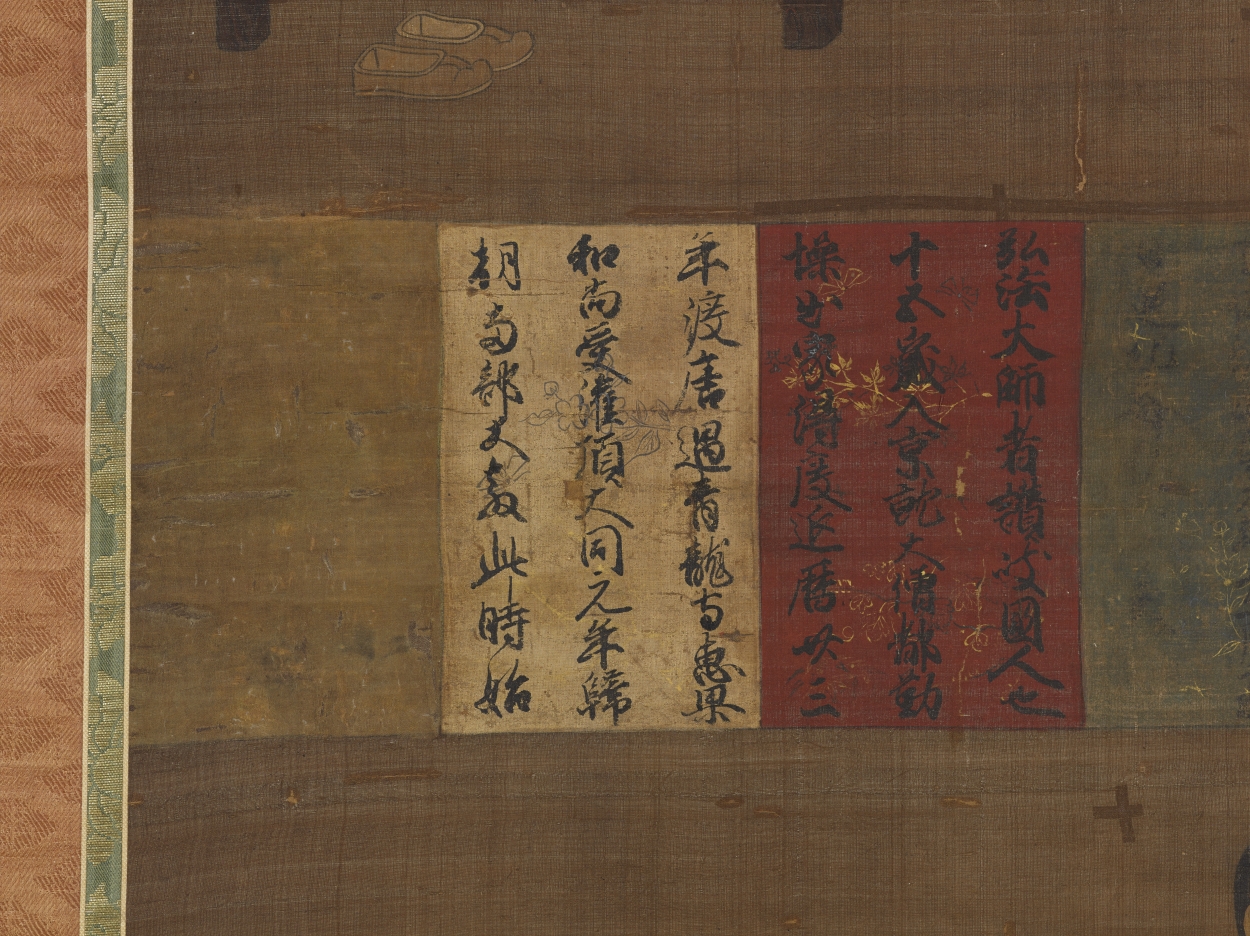 弘法大師者讃岐國人也
十五歳入京訖大僧都勤
操出家得度延暦廿三
年渡唐遇青龍寺惠果
和尚受灌頂大同元年歸
朝両部大教此時始